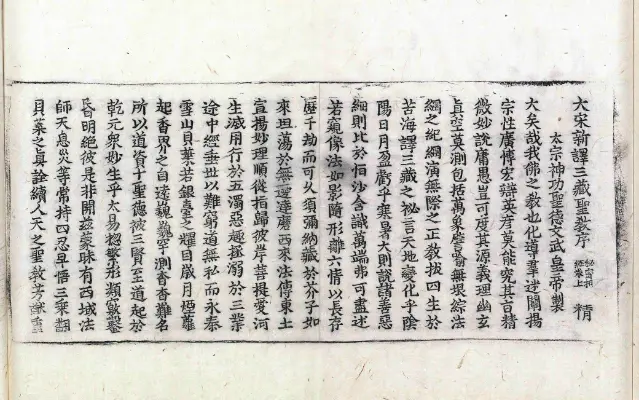 大宋新譯三藏聖教序
太宗神功聖德文武皇帝製
大矣哉我佛之教也化導羣迷闡揚
宗性廣博宏辯英彦莫能究其旨精
微妙說庸愚豈可度其源義理幽玄
真空莫測包括萬象譬喻無垠綜法
網之紀綱演無際之正教拔四生於
苦海譯三藏之祕言天地變化乎陰
陽日月盈虧乎寒暑大則說諸善惡
細則比於恒沙含識萬端弗可盡述
若窺像法如影隨形離六情以長存
歷千劫而可久須彌納藏於芥子如
來坦蕩於無邊達磨西來法傳東土
宣揚妙理順從指歸彼岸菩提愛河
生滅用行於五濁惡趣拯溺於三業
途中經垂世以難窮道無私而永泰
雪山貝葉若銀臺之耀目歲月煙蘿
起香界之自遠巍巍罕測杳杳難名
所以道資十聖德被三賢至道起於
乾元衆妙生乎太易揔繁形類鑿
昏明絕彼是非開茲蒙昧有西域法
師天息灾等常持四忍早悟三乘翻
貝葉之真詮續人天之聖教芳猷重
精